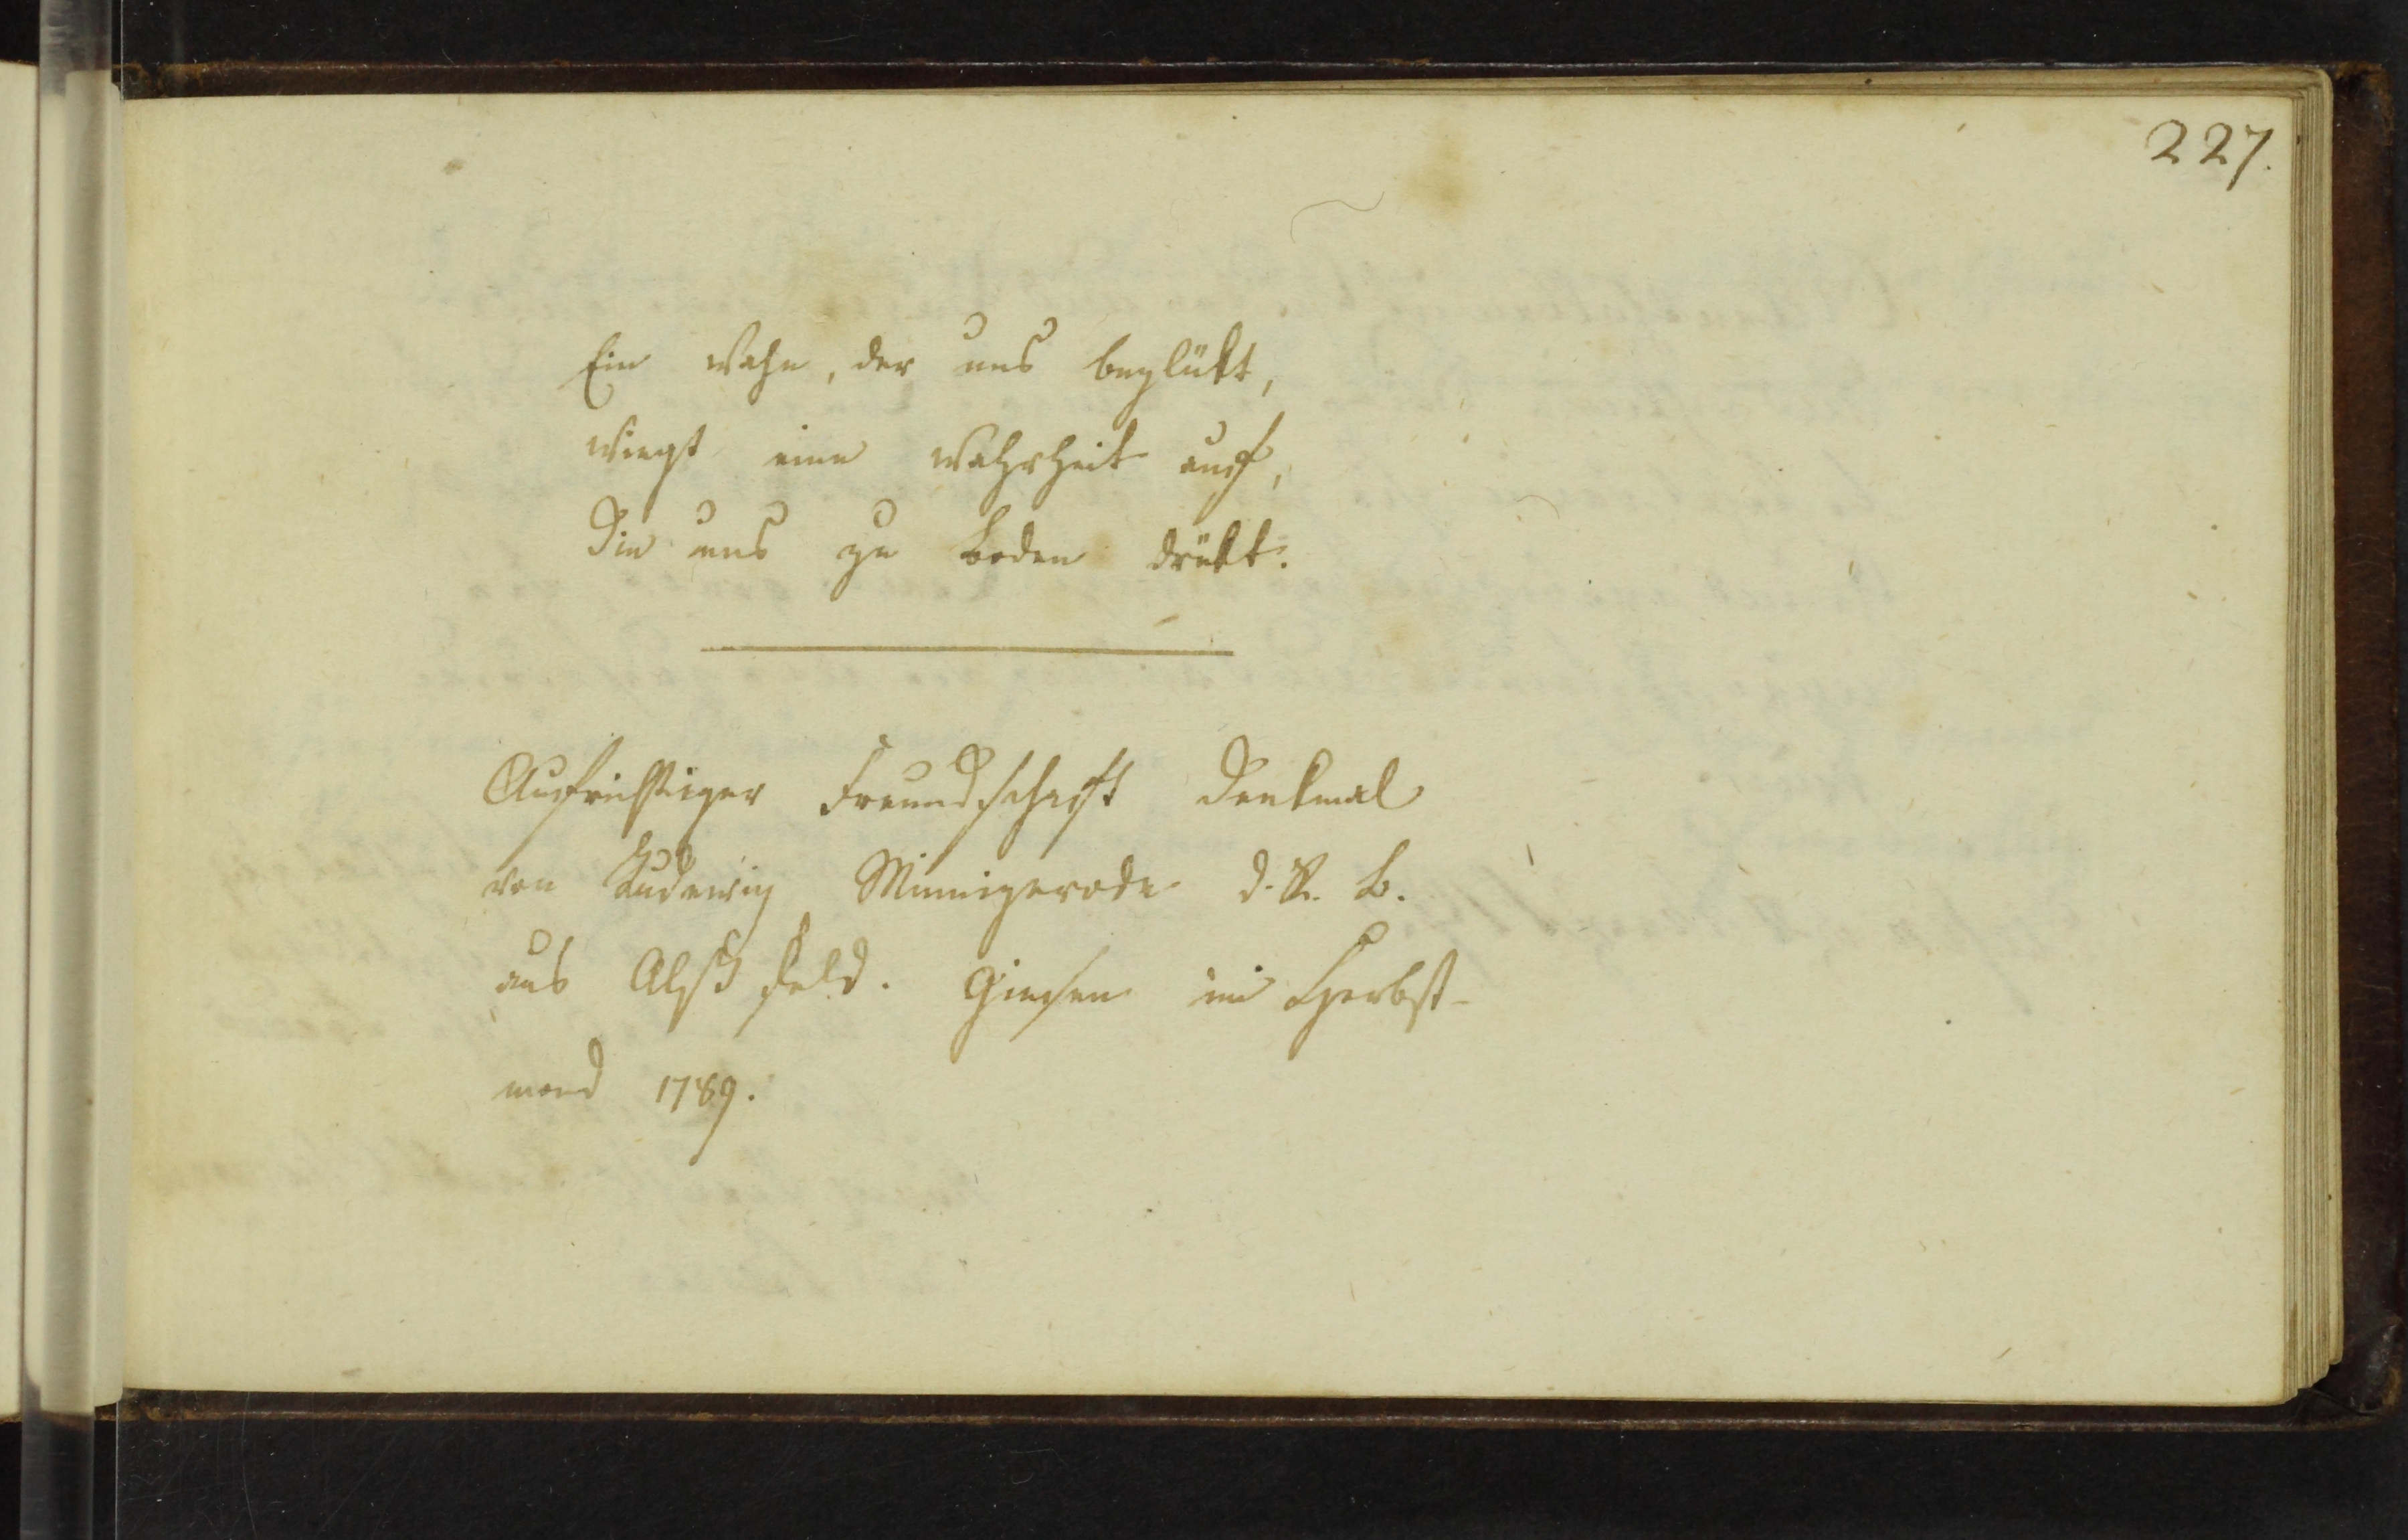 227.
Ein Wahn, der uns beglükt,
wiegt eine Wahrheit auf,
Die uns zu Boden drükt.
Aufrichtiger Freundschaft Denkmal
von Ludewig Minnigerode d. R. B.
aus Alßfeld. Giesen im Herbst-
mond 1789.